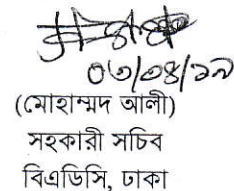 ০৩/০৪/১৯
(মোহাম্মদ আলী)
সহকারী সচিব
বিএডিসি, ঢাকা